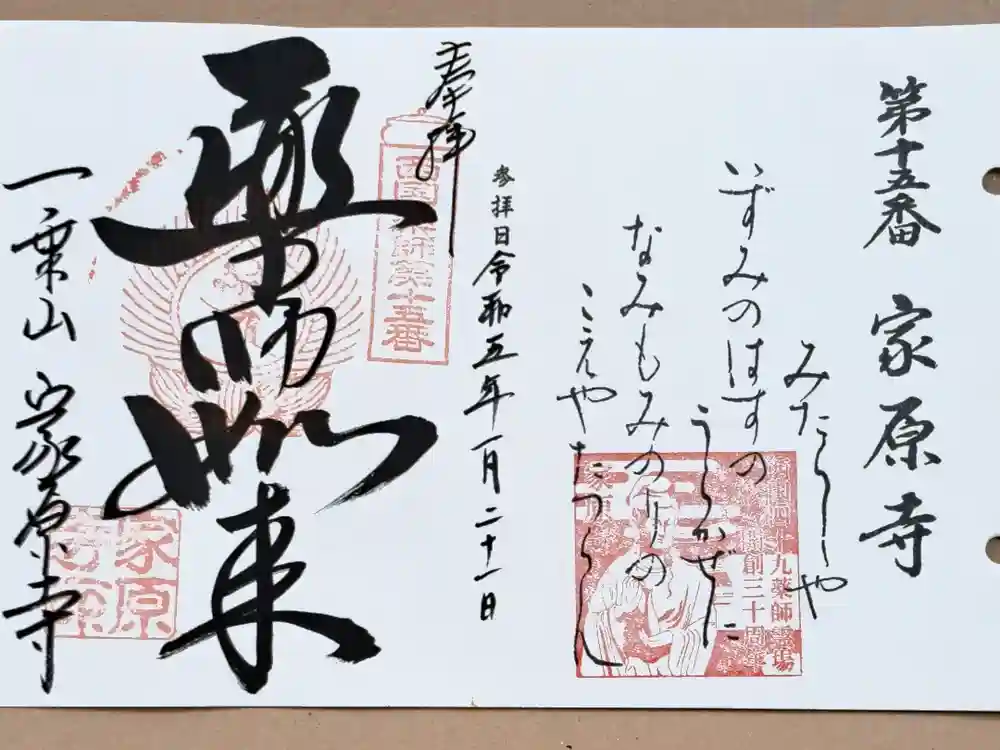 第十五番 家原寺
みたらしや
いずみのはすの
うらかぜに
なみもみのりの
こえやたつらし
西国四十九薬師霊場
開創三十周年
家原
参拝日令和五年一月二十一日
奉拝
西国薬師第十五番
薬師如来
一乗山 家原寺
家原